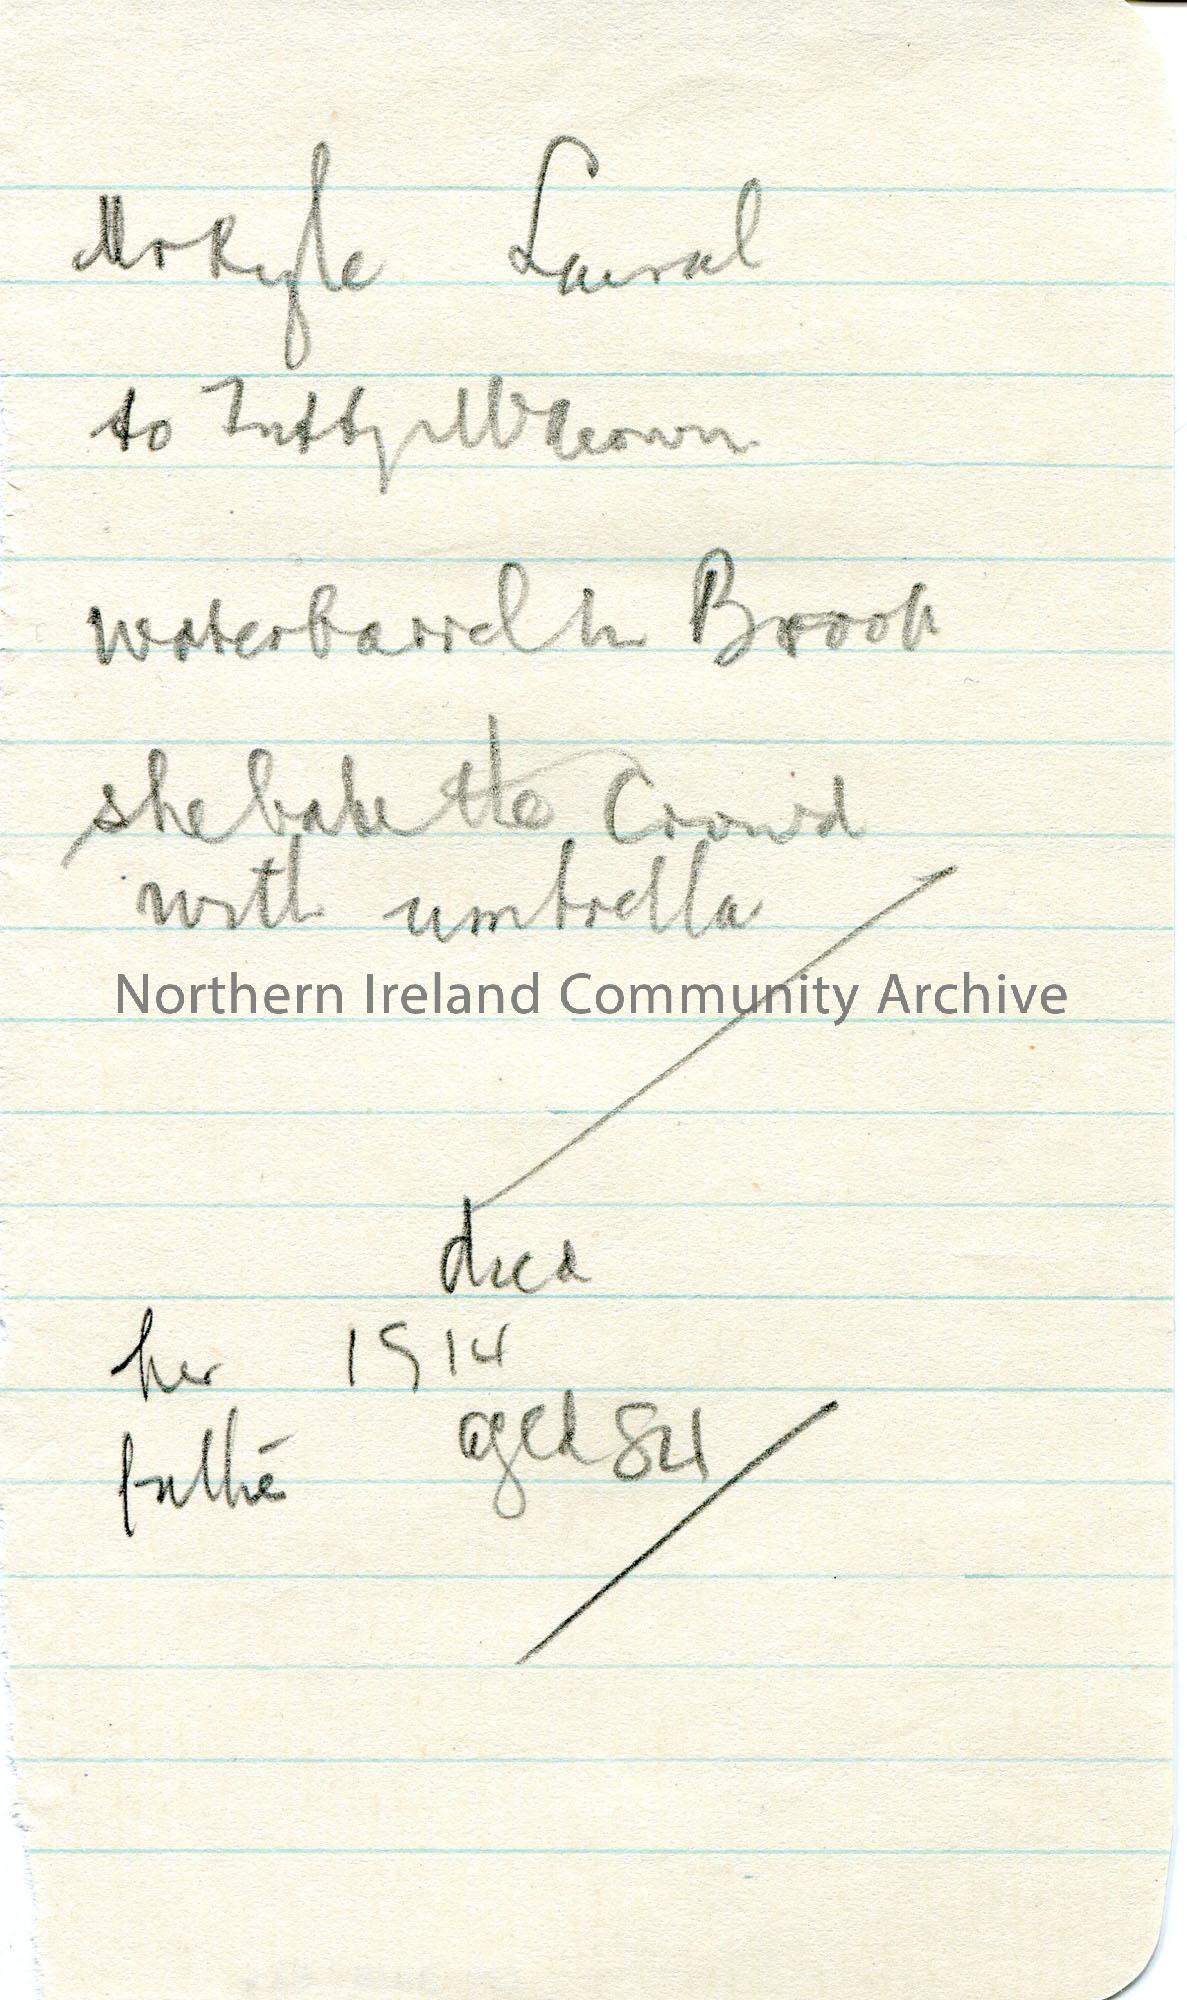 Mr Kyle Laural
to
waterbarrel in Brook
she bate the Crowd
with umbrella
Northern Ireland Community Archive
died
her 1914
father aged 84